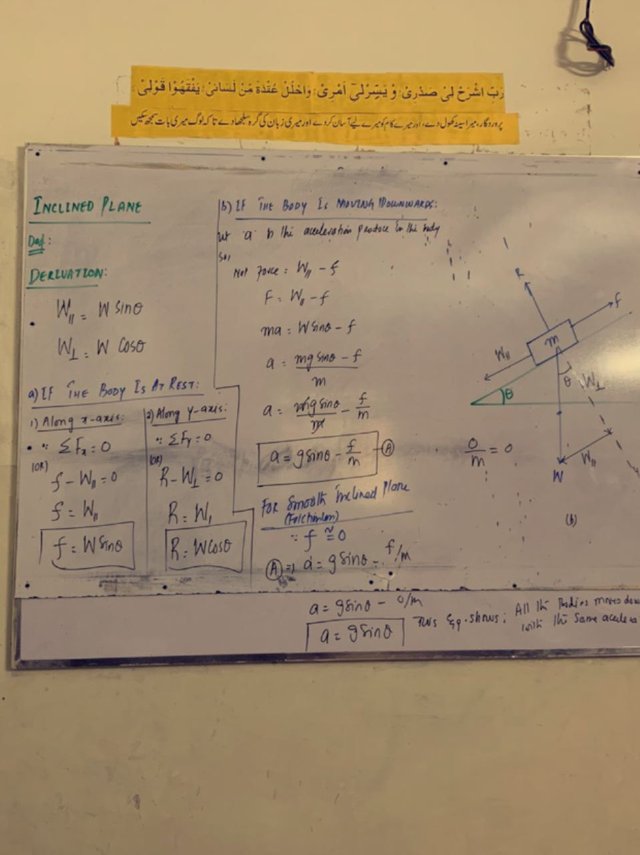 رَبِّ اشْرَحْ لِیْ صَدْرِیْ وَ یَسِّرْ لِیْۤ اَمْرِیْ وَاحْلُلْ عُقْدَةً مِّنْ لِّسَانِیْ یَفْقَهُوْا قَوْلِیْ
پروردگار، میرا سینہ کھول دے، اور میرے کام کو میرے لیے آسان کر دے اور میری زبان کی گرہ سلجھا دے تاکہ لوگ میری بات سمجھ سکیں
INCLINED PLANE
Def:
DERIVATION:
W∥ = W Sinθ
W⊥ = W Cosθ
a) IF THE BODY IS AT REST:
1) Along x-axis:
∵ ΣFx = 0
(OR)
f - W∥ = 0
f = W∥
f = W Sinθ
2) Along y-axis:
∵ ΣFy = 0
(OR)
R - W⊥ = 0
R = W⊥
R = W Cosθ
b) IF THE BODY IS MOVING DOWNWARDS:
let 'a' be the acceleration produce in the body
So,
Net Force = W∥ - f
F = W∥ - f
ma = W Sinθ - f
a = mg Sinθ - f / m
a = mg Sinθ / m - f/m
a = g Sinθ - f/m (A)
FOR Smooth Inclined Plane
∵ f ≅ 0
(A) ⇒ a = g Sinθ - f/m
a = g Sinθ - 0/m
a = g Sinθ
This Eq. shows: All the bodies moves dow
with the same accelera
R
f
m
W∥
θ
θ
W⊥
0/m = 0
W
W∥
(b)